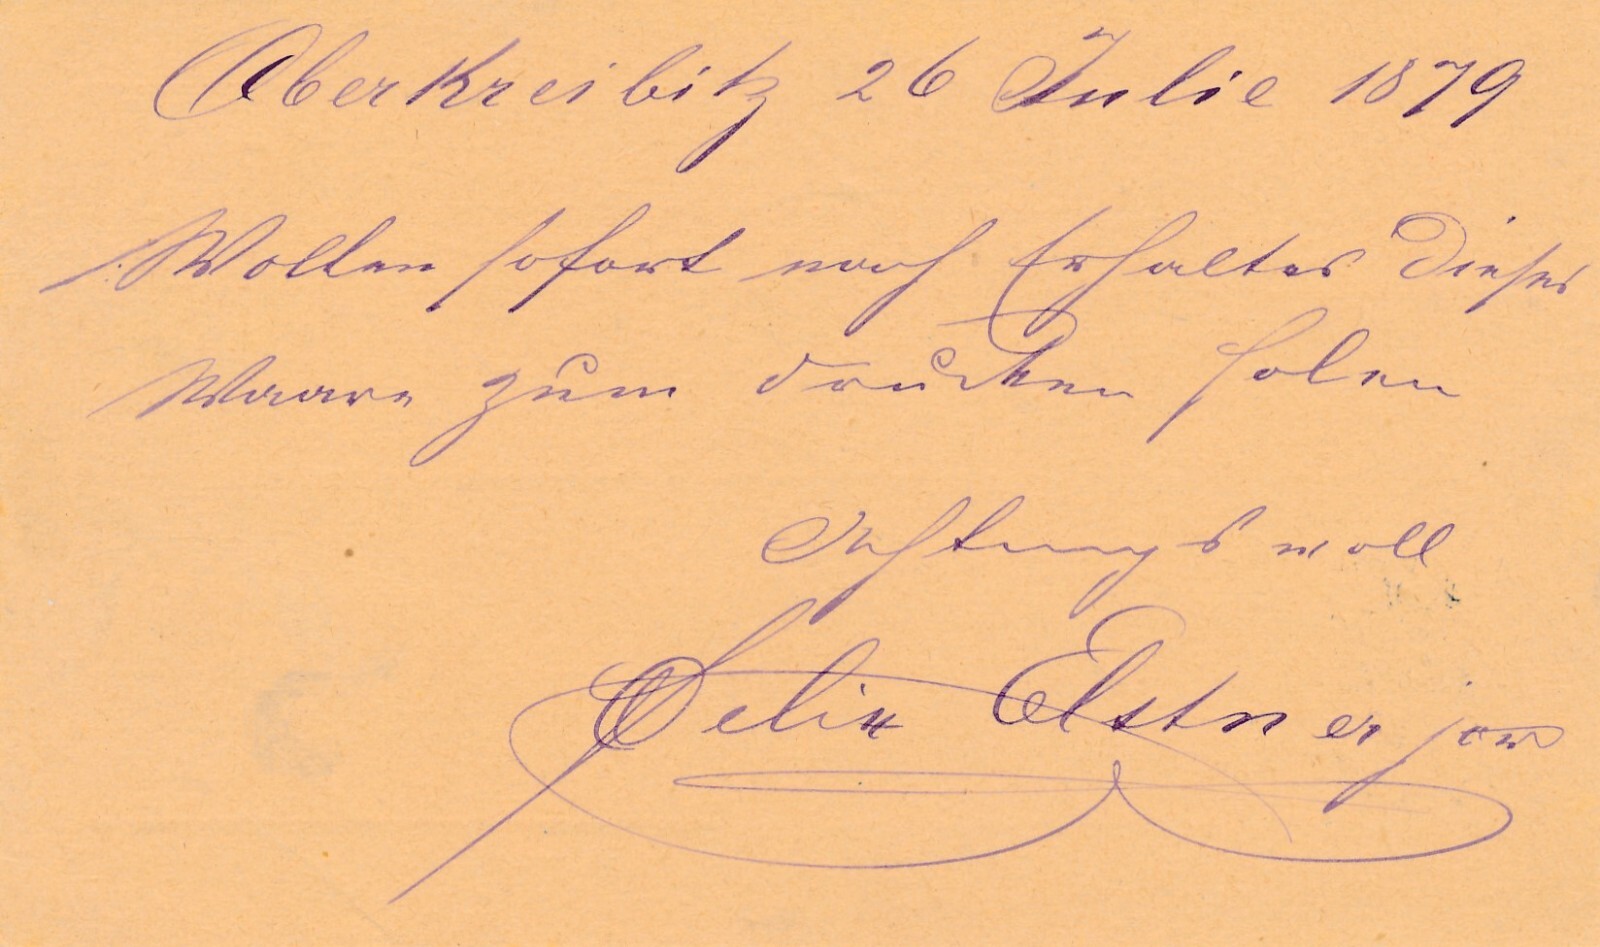 Oberkreibitz 26 Julie 1879
Wollen sofort nach Erhaltes Dieses
Waare zum drucken holen
Achtungsvoll
Felix Elstner jun